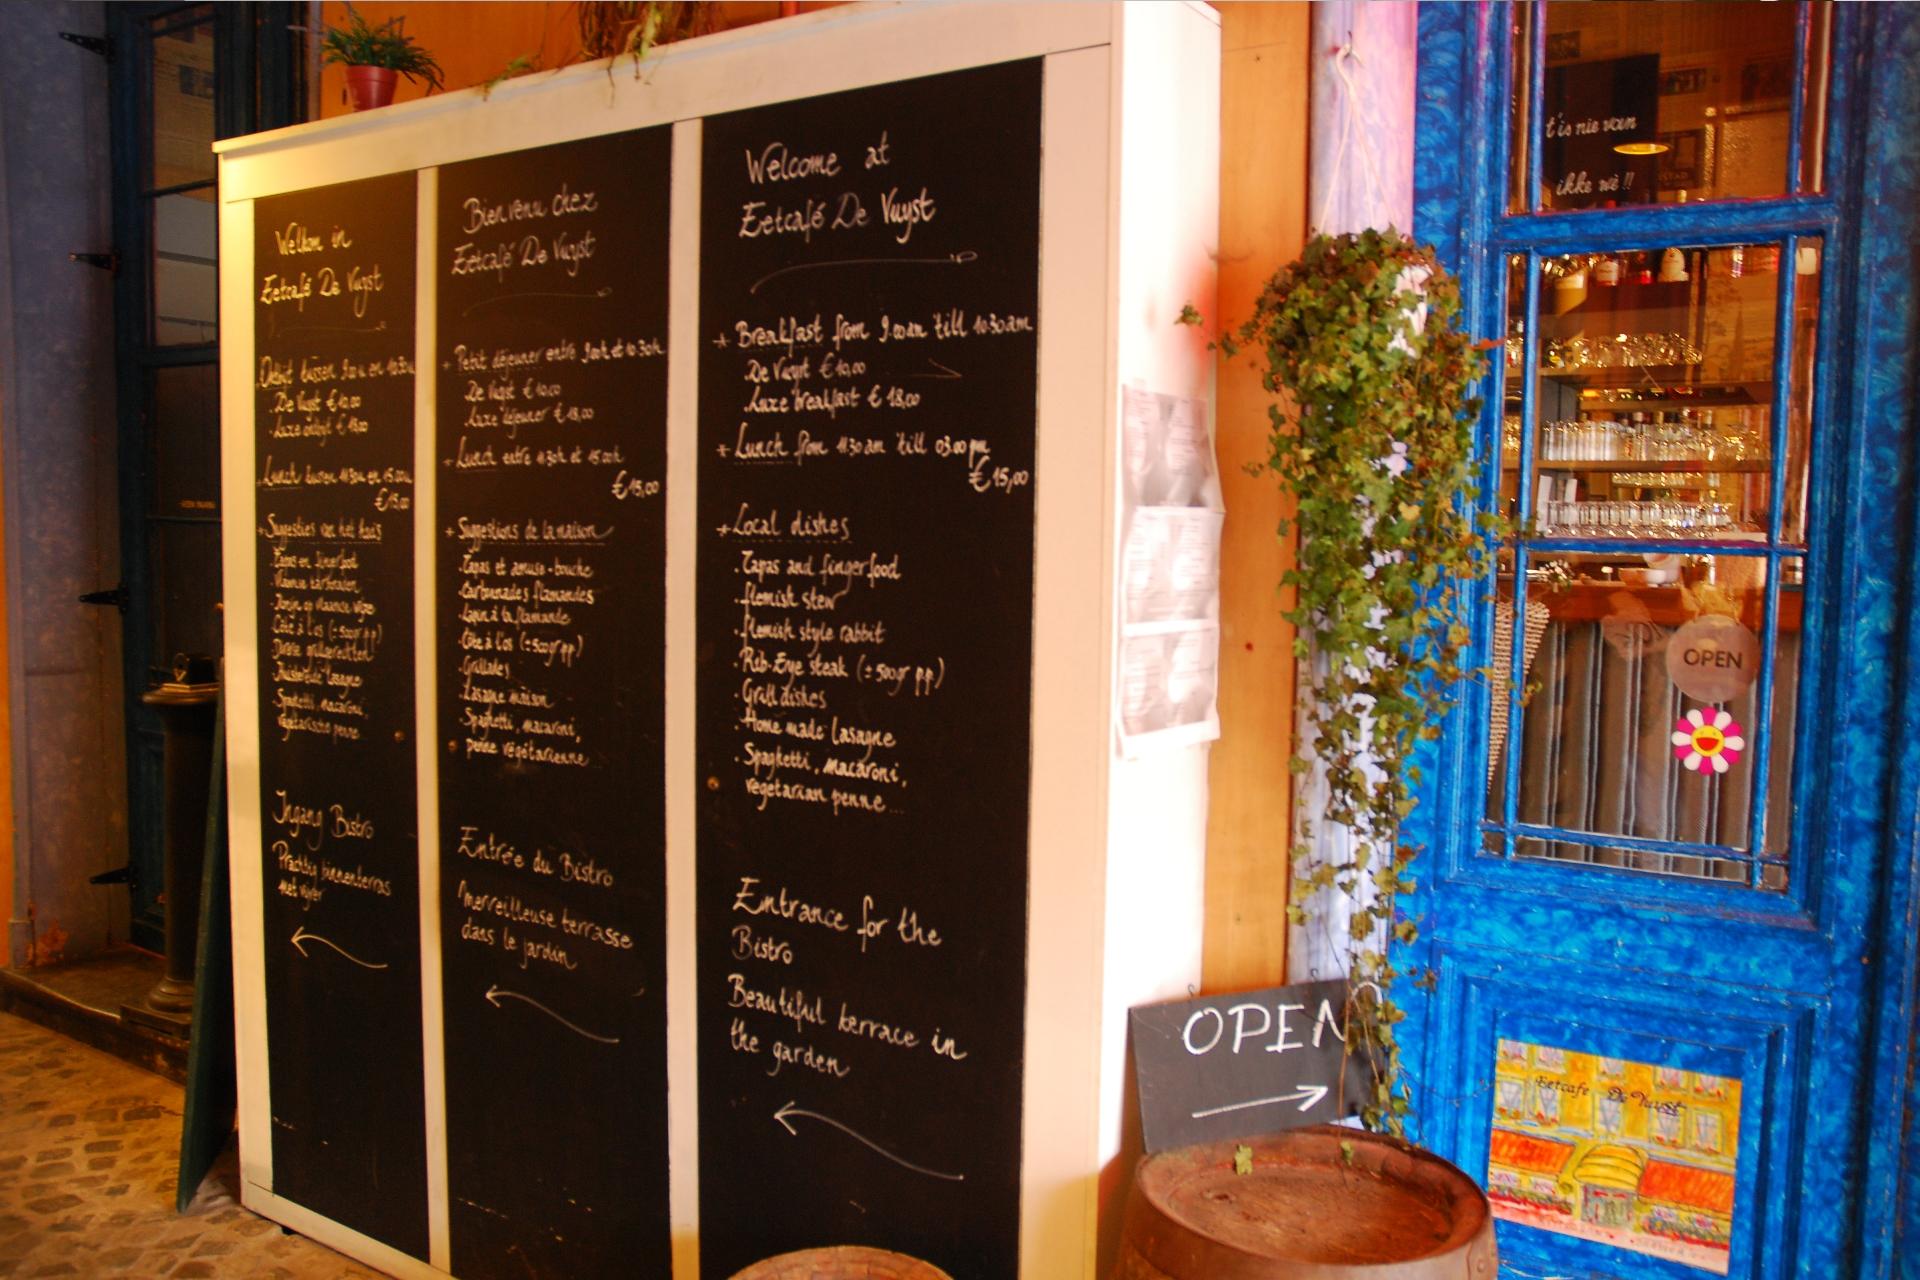 Welkom in
Eetcafé De Vuyst
Ontbijt tussen 9.00u en 10.30u
. De Vuyst €10,00
. Luxe ontbijt €18,00
Lunch tussen 11.30u en 15.00u
€15,00
+ Suggesties van het huis
. Tapas en fingerfood
. Vlaamse karbonaden
. Konijn op vlaamse wijze
. Côte à l'os (±500gr pp)
. Diverse grillgerechten
. Huisbereide lasagne
. Spaghetti, macaroni,
vegetarische penne
Ingang Bistro
Prachtig binnenterras
met vijver
Bienvenu chez
Eetcafé De Vuyst
+ Petit déjeuner entre 9.00h et 10.30h
. De Vuyst €10,00
. Luxe déjeuner €18,00
+ Lunch entre 11.30h et 15.00h
€15,00
+ Suggestions de la maison
. Tapas et amuse-bouche
. Carbonnades flamandes
. Lapin à la flamande
. Côte à l'os (±500gr pp)
. Grillades
. Lasagne maison
. Spaghetti, macaroni,
penne végétarienne
Entrée du Bistro
Merveilleuse terrasse
dans le jardin
Welcome at
Eetcafé De Vuyst
+ Breakfast from 9.00am 'till 10.30am
. De Vuyst €10,00
. Luxe breakfast €18,00
+ Lunch from 11.30am 'till 03.00pm
€15,00
+ Local dishes
. Tapas and fingerfood
. flemish stew
. flemish style rabbit
. Rib-Eye steak (±500gr pp)
. Grill dishes
. Home made lasagne
. Spaghetti, macaroni,
vegetarian penne...
Entrance for the
Bistro
Beautiful terrace in
the garden
OPEN
t'is nie van
ikke wè !!
OPEN
Eetcafe De Vuyst